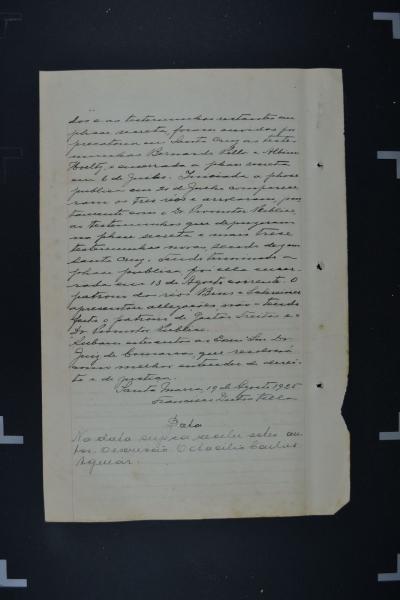 dos e as testemunhas restantes em
phase secreta, foram ouvidas por
precatoria em Santa Cruz as teste-
munhas Bernardo e Albino
e encerrada a phase secreta
em 6 de Junho. Iniciada a phase
publica em 20 de Junho comparece-
ram os tres réos e arrolaram, jun
tamente com o Dr. Promotor Publico
as testemunhas que depuzeram
na phase secreta e mais
testemunhas novas, sendo de
Santa Cruz. Tendo terminado a
phase publica foi ella encer-
rada em 13 de Agosto corrente. O
patrono dos réos e
apresentou allegações não o tendo
feito o patrono de Gastão e o
Dr. Promotor Publico.
Subam estes autos ao Exmo Snr. Dr.
Juiz de Comarca, que resolverá
como melhor entender de direi-
to e de justiça.
Santa Maria, 19 de Agosto 1925
Francisco
Data
Na data supra recebi estes au-
tos. O escrivão Octacilio Carlos
Aguiar.